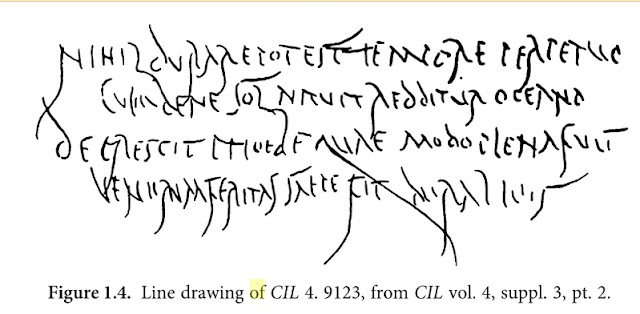 NIHIL DURARE POTEST TEMPORE PERPETUO
CUM BENE SOL NITUIT REDDITUR OCEANO
DECRESCIT PHOEBE QUAE MODO PLENA FUIT
FERITAS SAEPE FIT
Figure 1.4. Line drawing of CIL 4. 9123, from CIL vol. 4, suppl. 3, pt. 2.